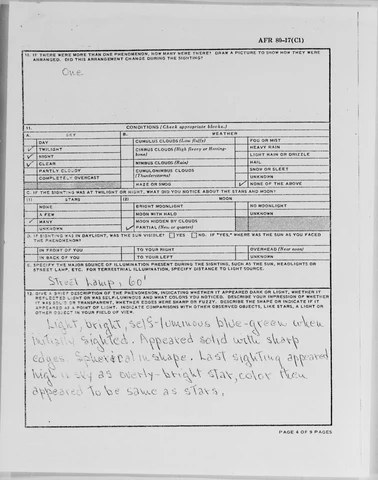 AFR 80-17(C1)
10. IF THERE WERE MORE THAN ONE PHENOMENON, HOW MANY WERE THERE? DRAW A PICTURE TO SHOW HOW THEY WERE
ARRANGED. DID THIS ARRANGEMENT CHANGE DURING THE SIGHTING?
One
11. CONDITIONS (Check appropriate blocks.)
A. SKY B. WEATHER
DAY CUMULUS CLOUDS (Low fluffy) FOG OR MIST
✓ TWILIGHT CIRRUS CLOUDS (High fleecy or Herring-bone) HEAVY RAIN
✓ NIGHT LIGHT RAIN OR DRIZZLE
✓ CLEAR NIMBUS CLOUDS (Rain) HAIL
PARTLY CLOUDY CUMULONIMBUS CLOUDS (Thunderstorms) SNOW OR SLEET
COMPLETELY OVERCAST UNKNOWN
HAZE OR SMOG ✓ NONE OF THE ABOVE
C. IF THE SIGHTING WAS AT TWILIGHT OR NIGHT, WHAT DID YOU NOTICE ABOUT THE STARS AND MOON?
(1) STARS (2) MOON
NONE BRIGHT MOONLIGHT NO MOONLIGHT
A FEW MOON WITH HALO UNKNOWN
✓ MANY MOON HIDDEN BY CLOUDS
UNKNOWN ✓ PARTIAL (New or quarter)
D. IF SIGHTING WAS IN DAYLIGHT, WAS THE SUN VISIBLE? YES NO. IF "YES," WHERE WAS THE SUN AS YOU FACED
THE PHENOMENON?
IN FRONT OF YOU TO YOUR RIGHT OVERHEAD (Near noon)
IN BACK OF YOU TO YOUR LEFT UNKNOWN
E. SPECIFY THE MAJOR SOURCE OF ILLUMINATION PRESENT DURING THE SIGHTING, SUCH AS THE SUN, HEADLIGHTS OR
STREET LAMP, ETC. FOR TERRESTRIAL ILLUMINATION, SPECIFY DISTANCE TO LIGHT SOURCE.
Street lamp, 60'
12. GIVE A BRIEF DESCRIPTION OF THE PHENOMENON, INDICATING WHETHER IT APPEARED DARK OR LIGHT, WHETHER IT
REFLECTED LIGHT OR WAS SELF-LUMINOUS AND WHAT COLORS YOU NOTICED. DESCRIBE YOUR IMPRESSION OF WHETHER
IT WAS SOLID OR TRANSPARENT, WHETHER EDGES WERE SHARP OR FUZZY. DESCRIBE THE SHAPE OR INDICATE IF IT
APPEARED AS A POINT OF LIGHT. INDICATE COMPARISONS WITH OTHER OBSERVED OBJECTS, LIKE STARS, A LIGHT OR
OTHER OBJECT IN YOUR FIELD OF VIEW.
Light, bright, self-luminous blue-green when
initially sighted. Appeared solid with sharp
edges. Spherical in shape. Last sighting appeared
high in sky as overly-bright star, color then
appeared to be same as stars.
PAGE 4 OF 5 PAGES